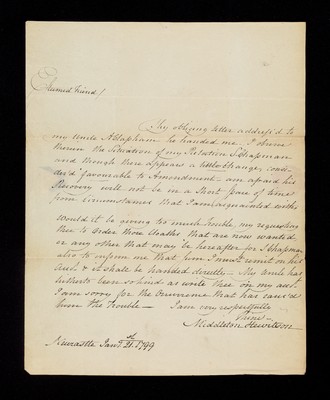 Esteemed Friend!
Thy obliging letter address'd to
my Uncle A Clapham he handed me. I observe
therein the Situation of my Relation S Chapman
and though there appears a little Change, cons-
ider'd favourable to Amendment am afraid his
Recovery will not be in a Short space of time
from circumstances that I am acquainted with
Would it be giving too much trouble, my requesting
thee to Order those Cloaths that are now wanted
or any other that may be hereafter for S Chapman
also to inform me that sum I must remit on his
Acct & it shall be handed directly — My Uncle has
hitherto been so kind as write thee on my acct
I am sorry for the Occurrence that has caus'd
thee the trouble — I am very respectfully
Thine
Middleton Hewitson
Newcastle Jany 21st 1799